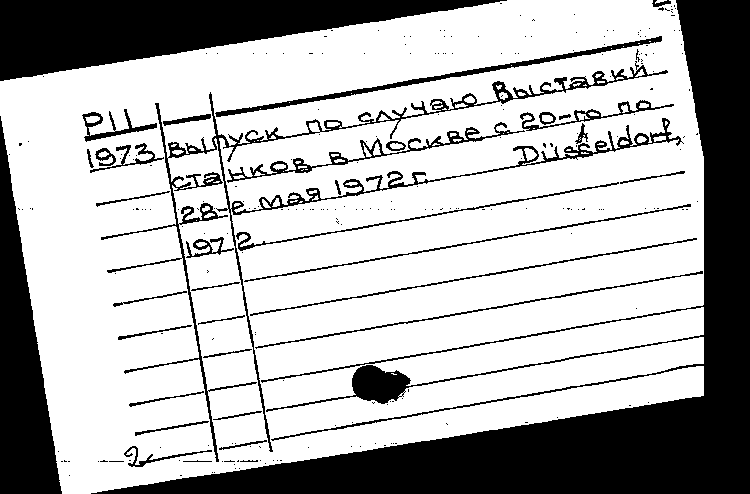 P11
1973 Выпуск по случаю Выставки
станков в Москве с 20-го по
28-е мая 1972 г. Düsseldorf,
1972.
2